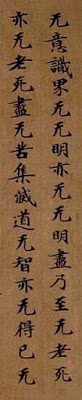 无意識界无无明亦无无明盡乃至无老死
亦无老死盡无苦集滅道无智亦无得已无